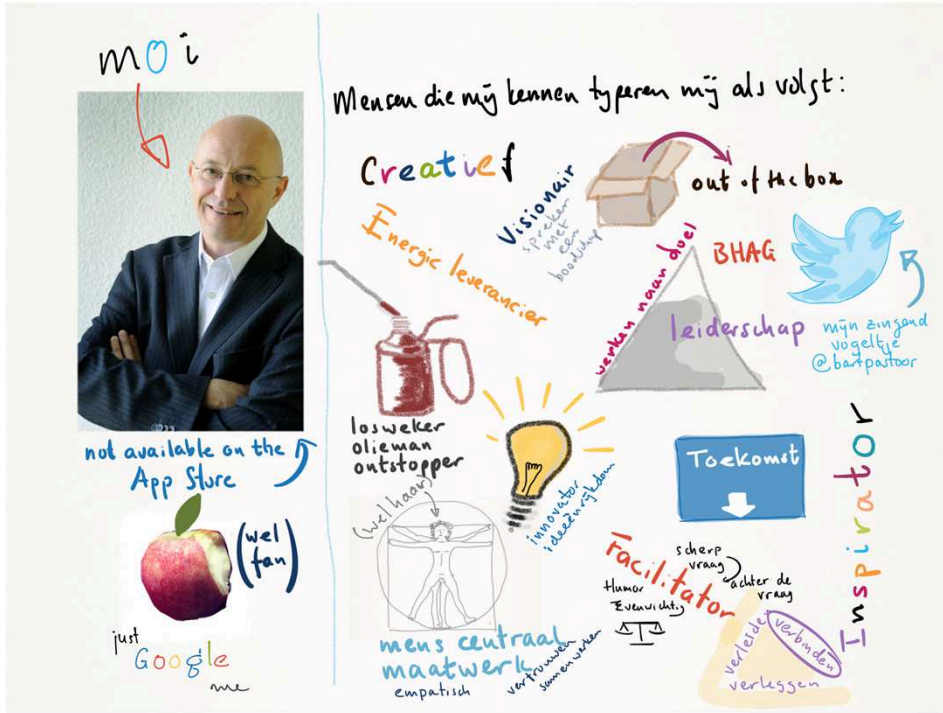 moi
not available on the
App Store
(wel
fan)
just
Google
me
Mensen die mij kennen typeren mij als volgt:
Creatief
Energie leverancier
Visionair
spreker
met
een
boodschap
out of the box
BHAG
werken naar doel
leiderschap
mijn zingend
vogeltje
@bartpastoor
losweker
olieman
ontstopper
innovator
ideeënrijkdom
Toekomst
Inspirator
(wel haar)
mens centraal
maatwerk
empatisch
vertrouwen
samenwerken
Facilitator
scherp
vraag
achter de
vraag
Humor
Evenwichtig
verleiden
verbinden
verleggen